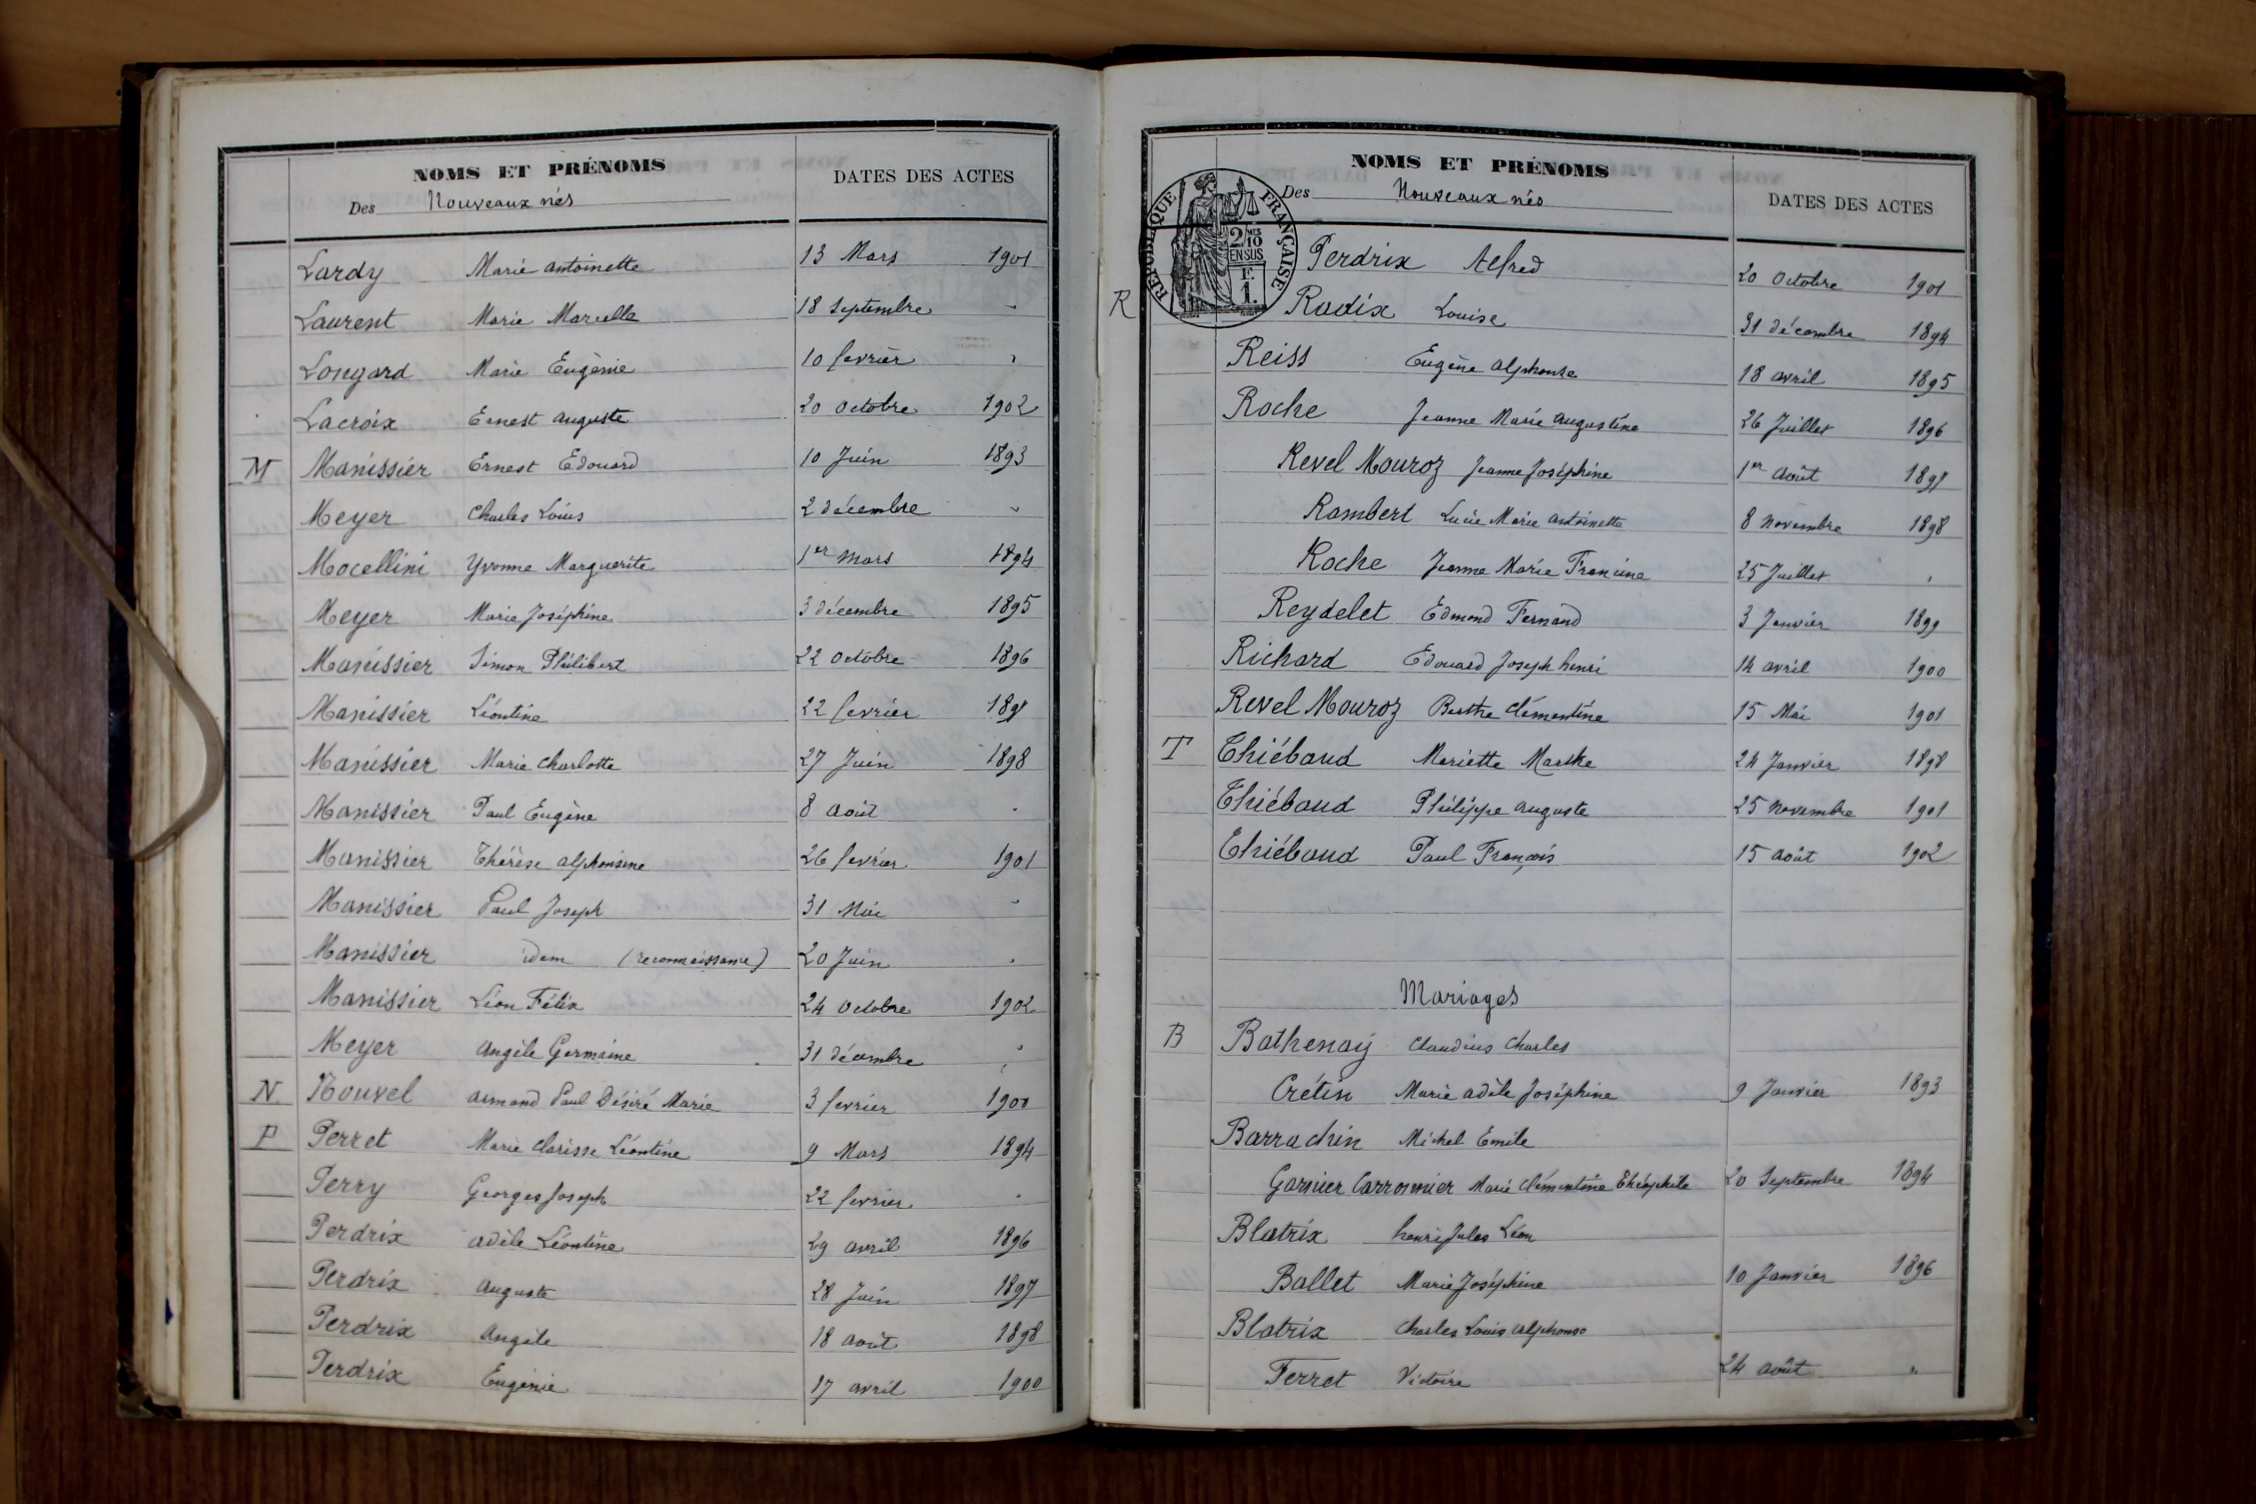 NOMS ET PRÉNOMS
DATES DES ACTES
Des Nouveaux nés
Lardy Marie Antoinette 13 Mars 1901
Laurent Marie Marcelle 18 Septembre "
Longard Marie Eugénie 10 fevrier "
Lacroix Ernest Auguste 20 Octobre 1902
M Manissier Ernest Edouard 10 Juin 1893
Meyer Charles Louis 2 décembre "
Mocellini Yvonne Marguerite 1er Mars 1894
Meyer Marie Joséphine 3 décembre 1895
Manissier Simon Philibert 22 Octobre 1896
Manissier Léontine 22 fevrier
Manissier Marie Charlotte 27 Juin 1898
Manissier Paul Eugène 8 août "
Manissier Thérèse Alphonsine 26 fevrier 1901
Manissier Paul Joseph 31 Mai "
Manissier idem (reconnaissance) 20 Juin "
Manissier Léon Félix 24 Octobre 1902
Meyer Angèle Germaine 31 décembre "
N Nouvel Armand Paul Désiré Marie 3 fevrier
P Perret Marie Clarisse Léontine 9 Mars 1894
Perry Georges Joseph 22 fevrier "
Perdrix Adèle Léontine 29 avril 1896
Perdrix Auguste 28 Juin 1897
Perdrix Angèle 18 août 1898
Perdrix Eugénie 17 avril 1900
NOMS ET PRÉNOMS
DATES DES ACTES
Des Nouveaux nés
RÉPUBLIQUE FRANÇAISE
2 MES 10
EN SUS
F.
1.
Perdrix Alfred 20 Octobre 1901
R Radix Louise 31 décembre 1894
Reiss Eugène Alphonse 18 avril 1895
Roche Jeanne Marie Augustine 26 Juillet 1896
Revel Mouroz Jeanne Joséphine 1er août
Rambert Lucie Marie Antoinette 8 Novembre 1898
Roche Jeanne Marie Francine 25 Juillet "
Reydelet Edmond Fernand 3 Janvier 1899
Richard Edouard Joseph henri 14 avril 1900
Revel Mouroz Berthe Clémentine 15 Mai 1901
T Thiébaud Mariette Marthe 24 Janvier 1898
Thiébaud Philippe Auguste 25 Novembre 1901
Thiébaud Paul François 15 août 1902
Mariages
B Bathenay Claudius Charles
Crétin Marie Adèle Joséphine 9 Janvier 1893
Barrachin Michel Emile
Garnier Carronnier Marie Clémentine Théophile 20 Septembre 1894
Blatrix henri Jules Léon
Ballet Marie Joséphine 10 Janvier 1896
Blatrix Charles Louis Alphonse
Ferret Victoire 24 août "